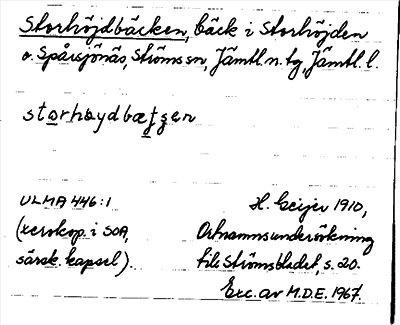 Storhöjdbäcken, bäck i Storhöjden
o. Spårsjönäs, Ströms sn, Jämtl. n. tg, Jämtl. l.
storhøydbæʈʂen
ULMA 446:1
(xerokop. i SOA,
särsk. kapsel).
H. Geijer 1910,
Ortnamnsundersökning
till Strömsbladet, s. 20.
Exc. av M.D.E. 1967.